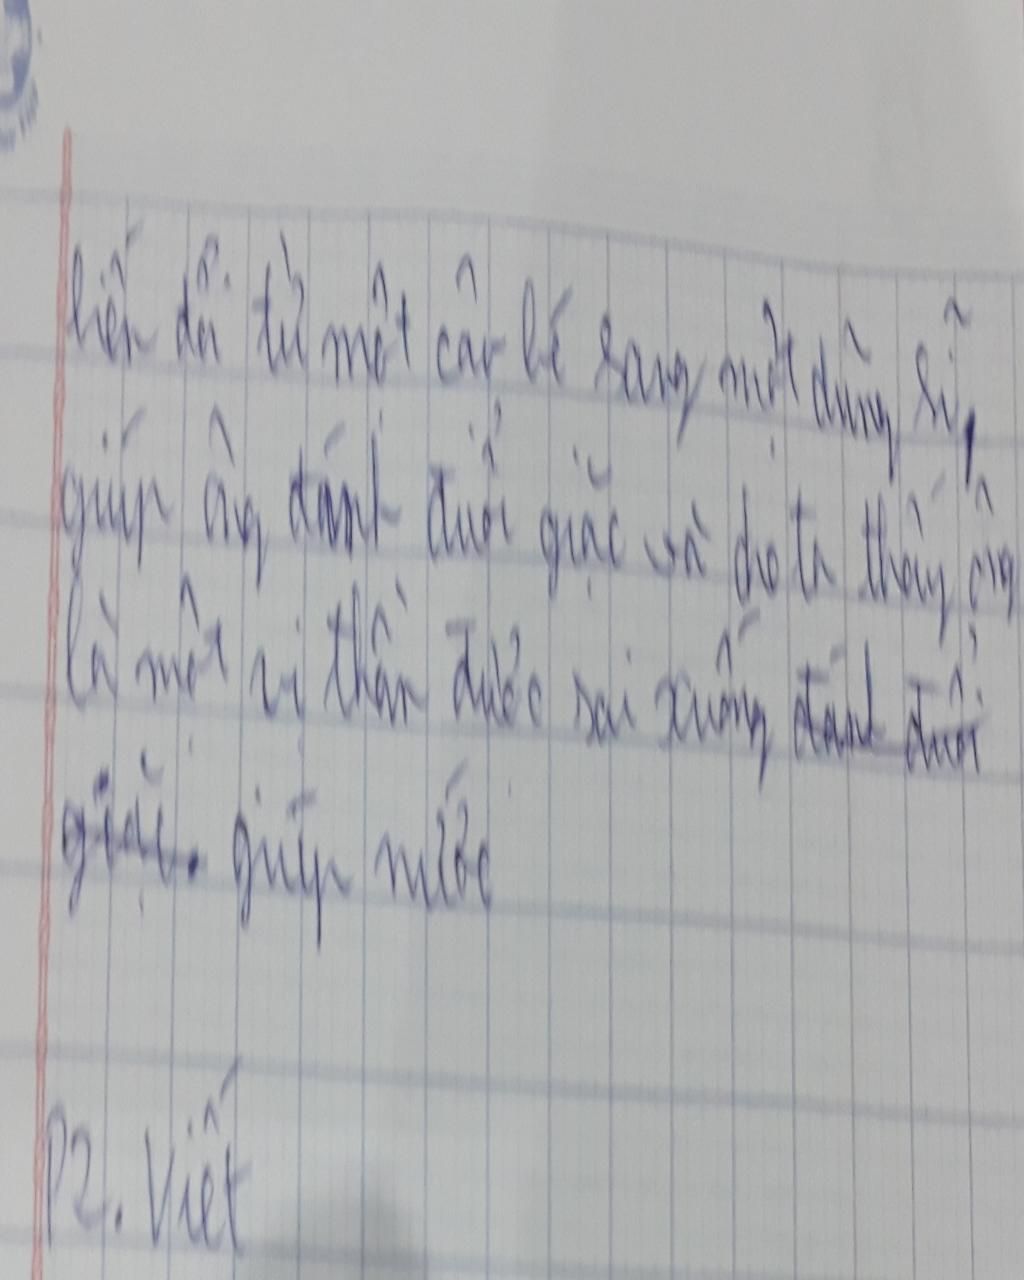 biến đổi từ một cậu bé sang một dũng sĩ,
giúp ông đánh đuổi giặc và cho ta thấy ông
là một vị thần được sai xuống đánh đuổi
giặc. giúp nước
P2. Viết